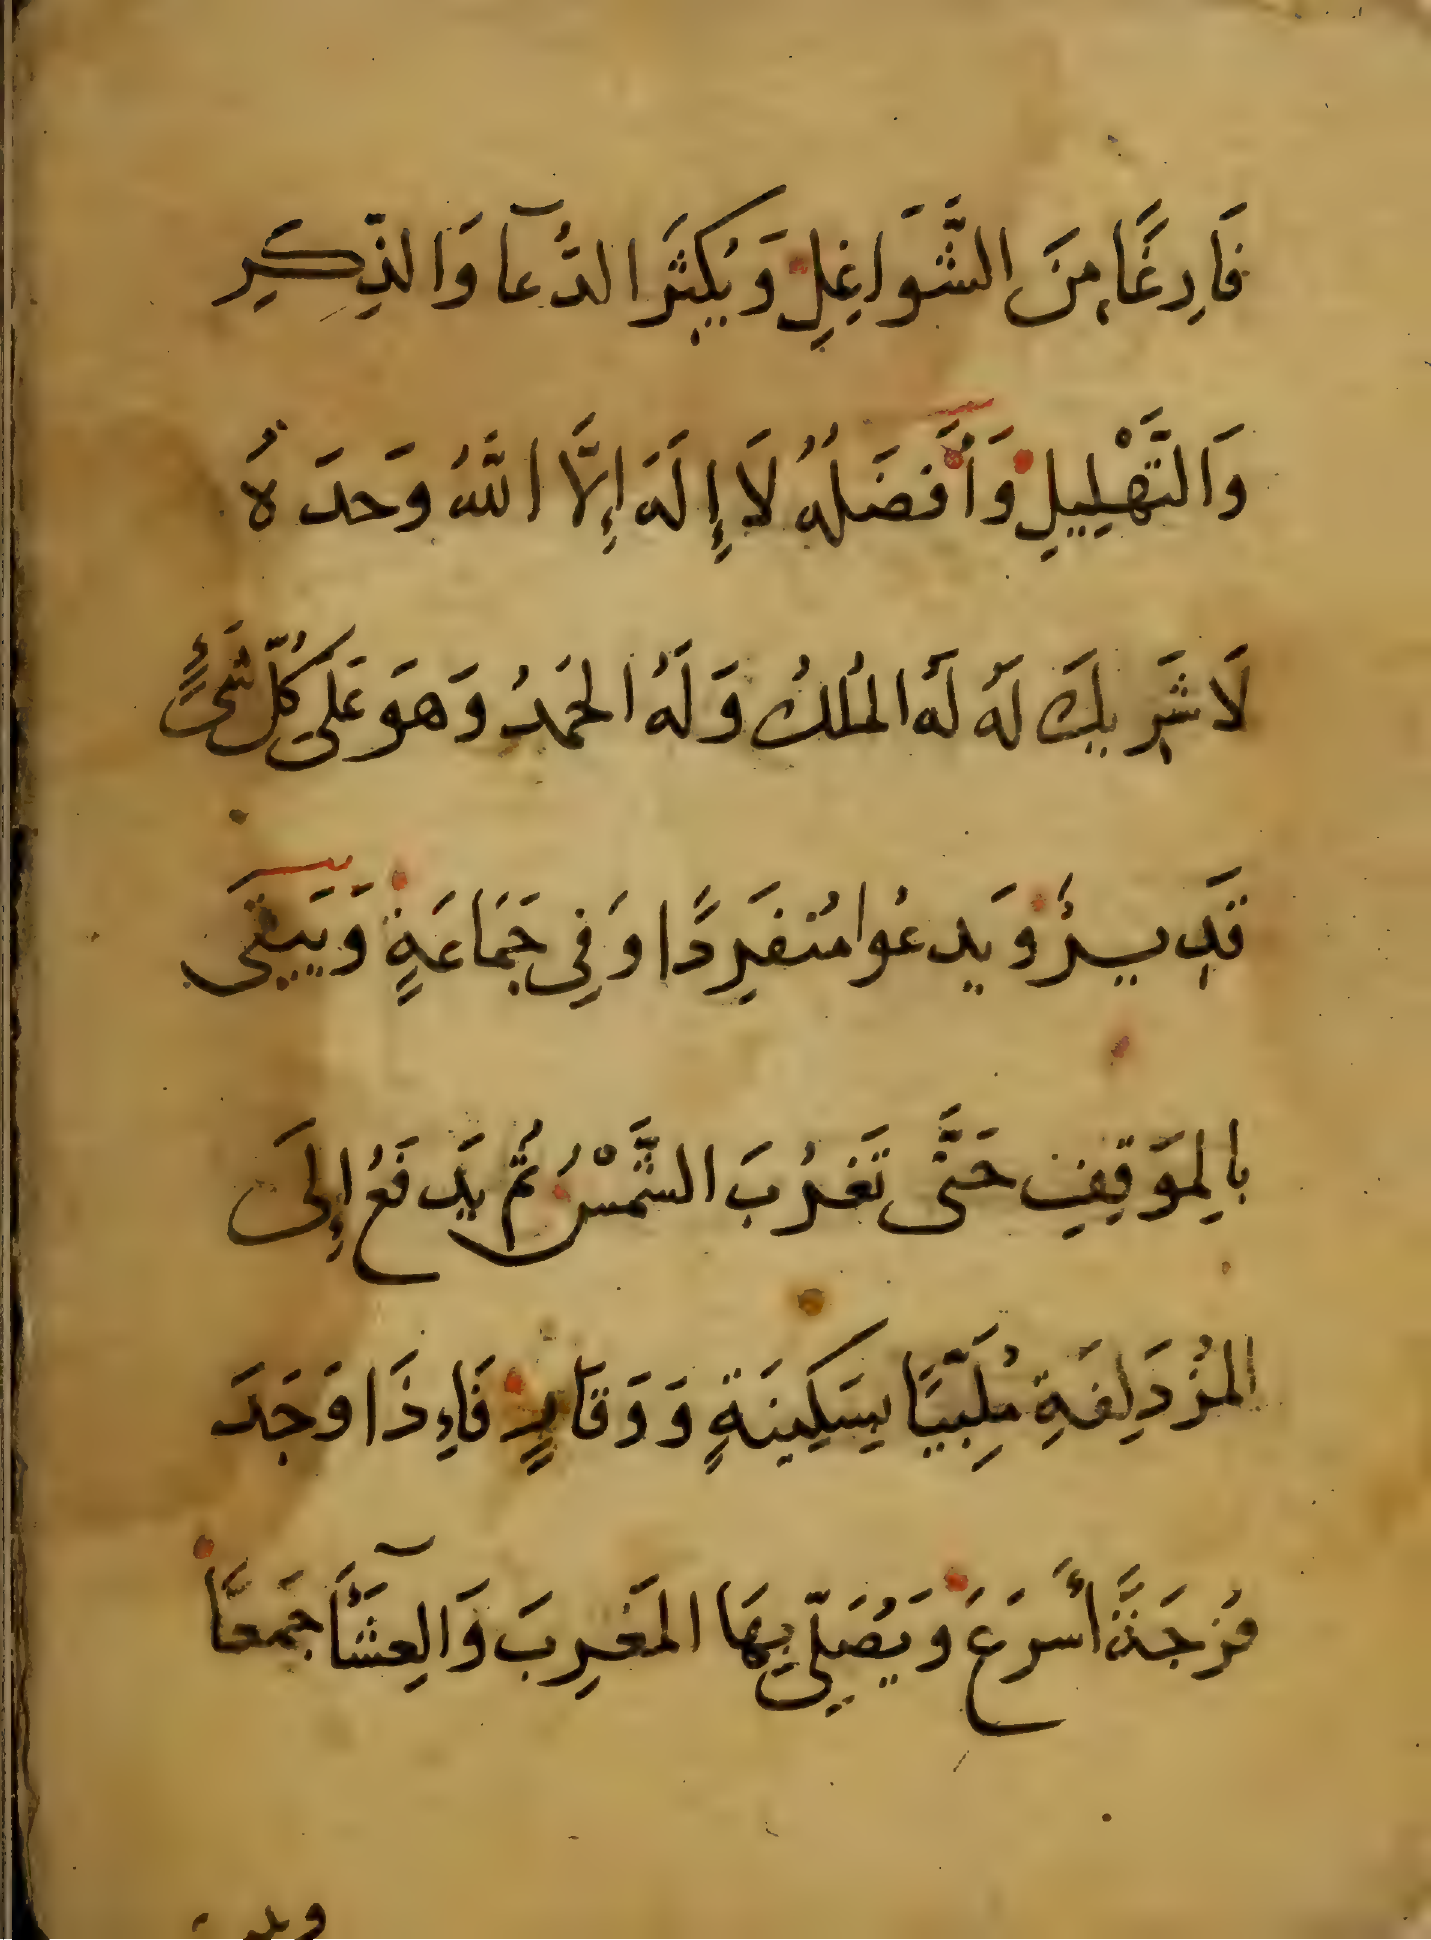 فَارِغًا مِنَ الشَّوَاغِلِ وَيُكثِرَ الدُّعآ وَالذِّكِرِ
وَالتَّهْلِيلِ وَأَفضَلُهُ لَا إِلَهَ إِلَّا اللَّهُ وَحدَهُ
لَا شَرِيكَ لَهُ لَهُ المُلكُ وَلَهُ الحَمدُ وَهوَ عَلَى كُلِّ شَيءٍ
قَدِيرٌ وَيَدعُوا مُنفَرِدًا وَفِي جَمَاعَةٍ وَيَبقَى
بِالمَوقِفِ حَتَّى تَغرُبَ الشَّمْسُ ثُمَّ يَدفَعُ إِلَى
المُزدَلِفَةِ مُلَبِّيًا بِسَكِينَةٍ وَوَقَارٍ فَإِذَا وَجَدَ
فُرجَةً أَسرَعَ وَيُصَلِّي بِهَا المَغرِبَ وَالعِشَآَ جَمعًا